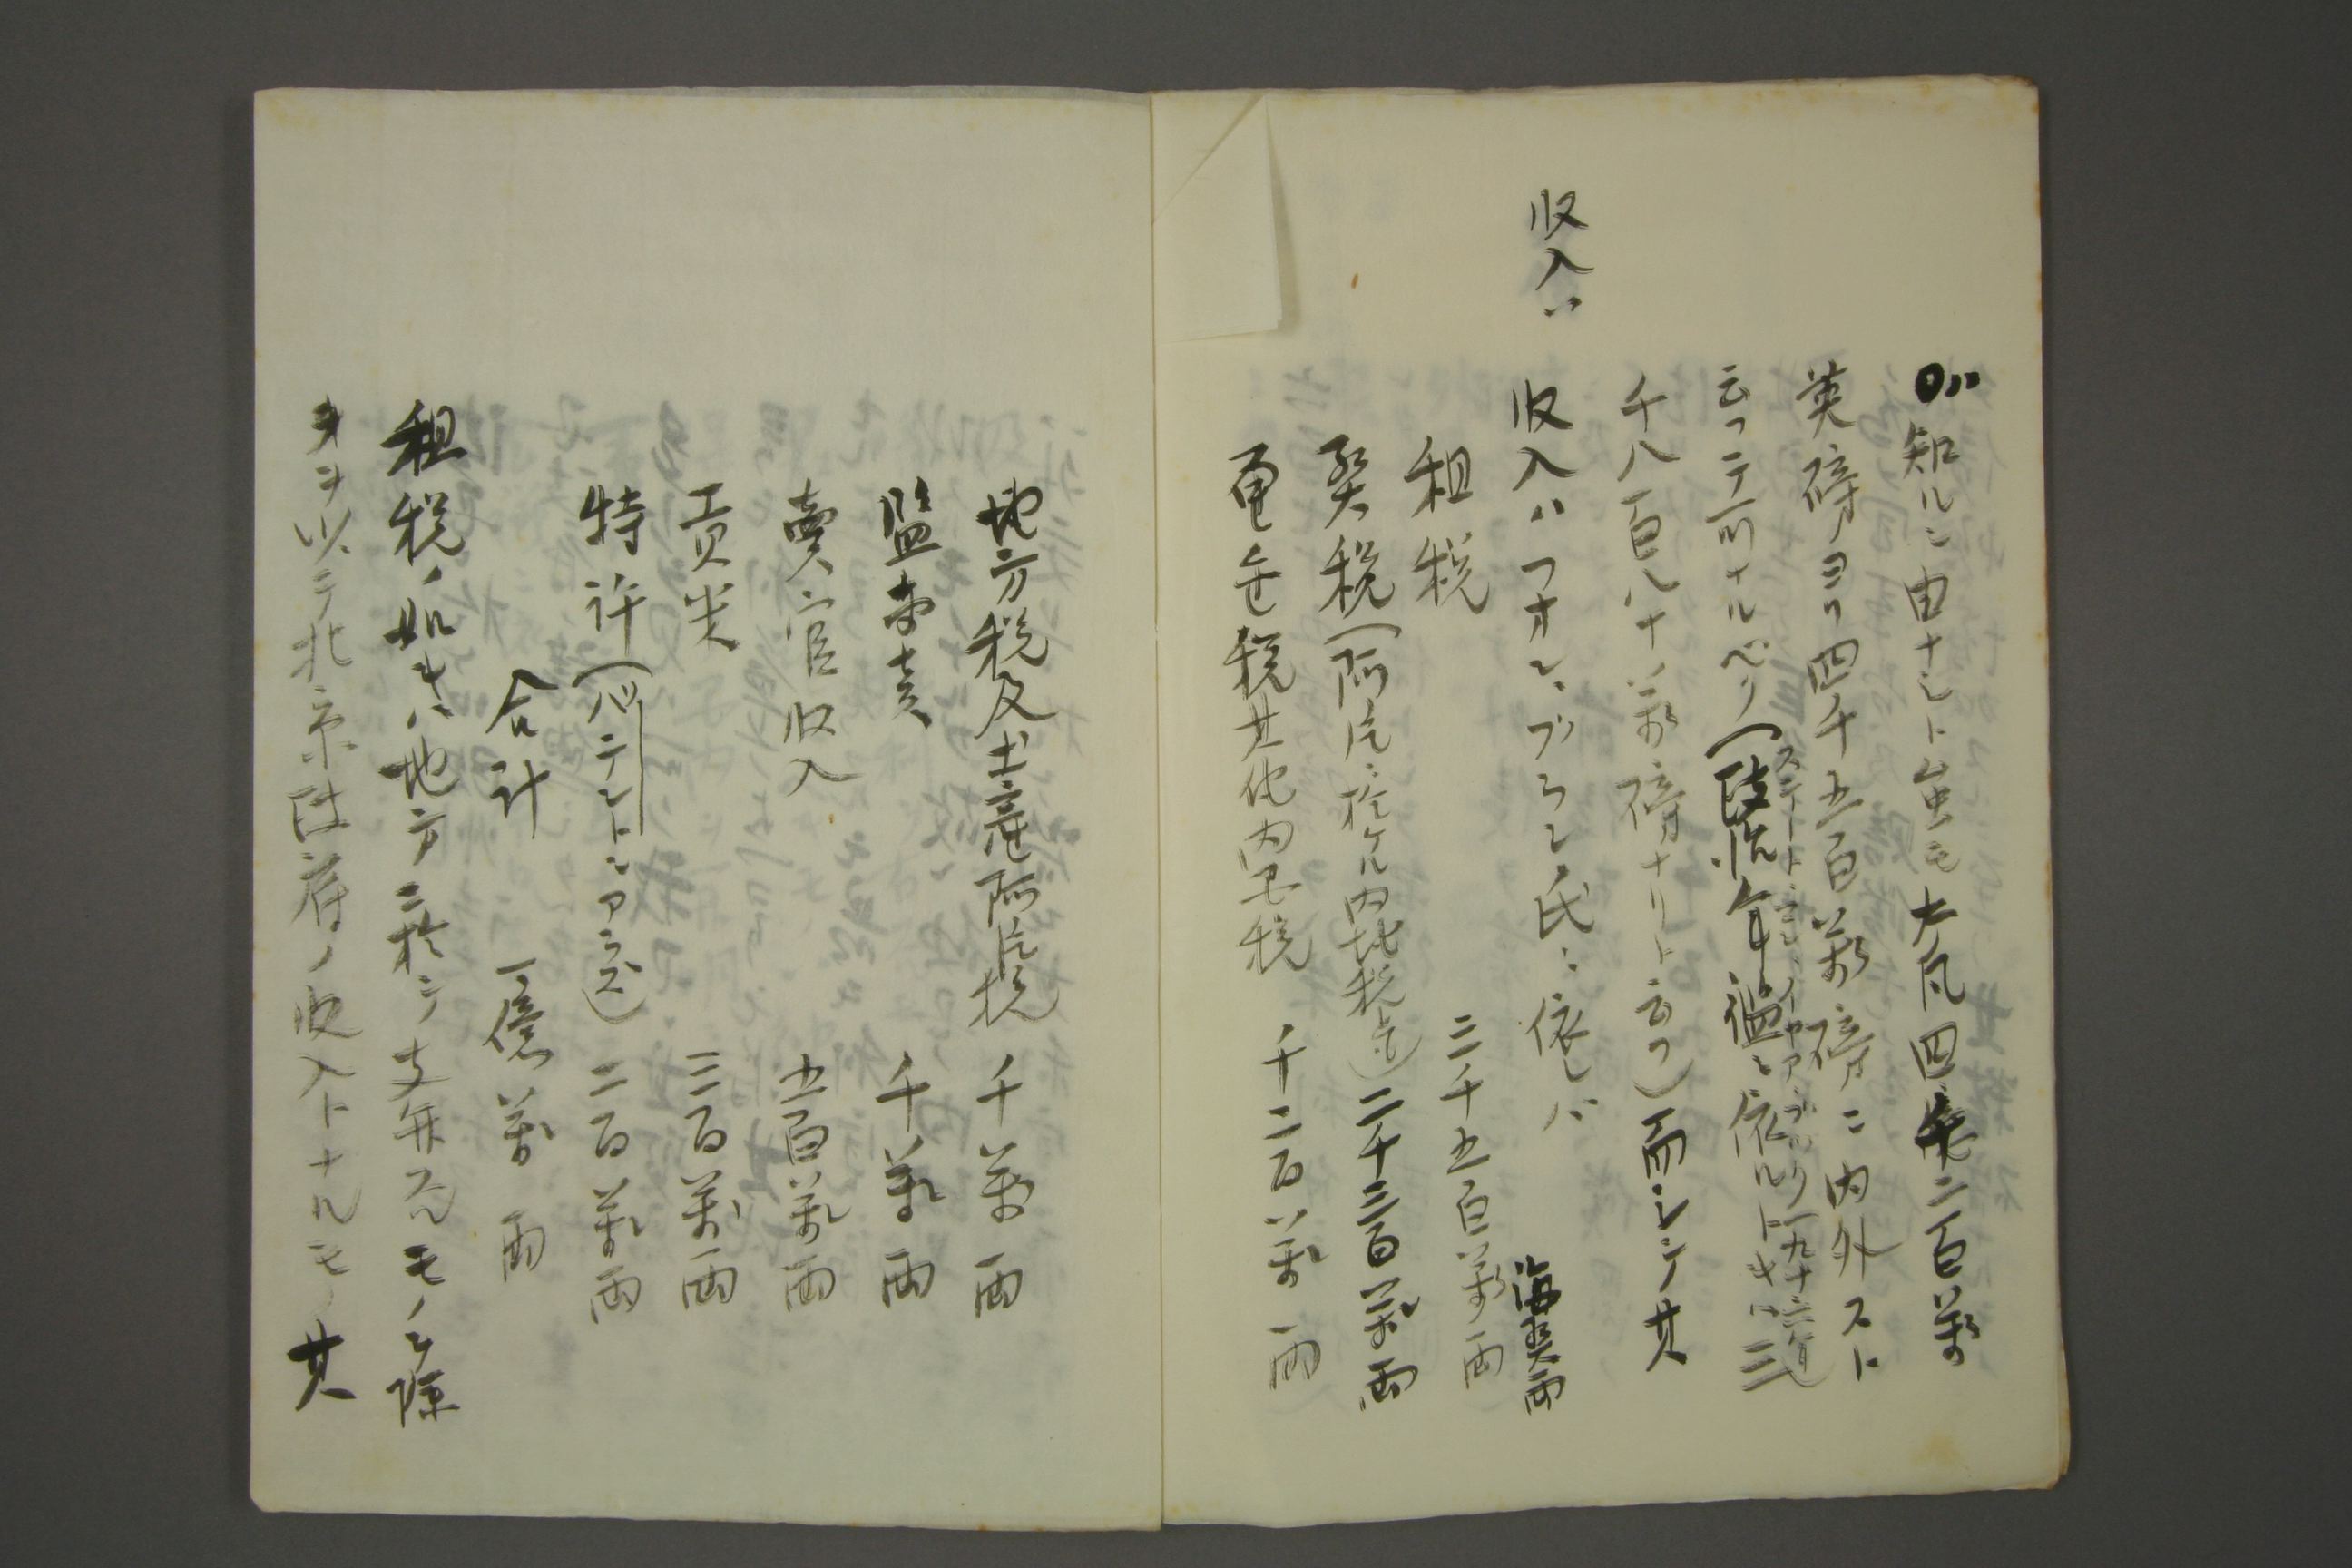 収入ハ
知ルニ由ナシト雖モ大凡四千二百萬
英磅ヨリ四千五百萬磅ニ内外スト
云フテ可ナルベク(政治年鑑ニ依ルトキハ三
ステートメンイヤアブック一九十三年
千八百八十萬磅ナリト云フ)而シテ其
収入ハフオン、ブラント氏ニ依レバ
海関両
租税 二千五百萬両
関税(阿片ニ於ケル内地税共)二千三百萬両
釐金税其他内国税 千二百萬両
地方税及土産阿片税 千萬両
塩専売 千萬両
賣官収入 五百萬両
貢米 三百萬両
特許(パテントニアラズ) 二百萬両
合計 一億萬両
租税ノ如キハ地方ニ於テ支弁スルモノヲ除
キヲ以テ北京政府ノ収入トナルモノ其